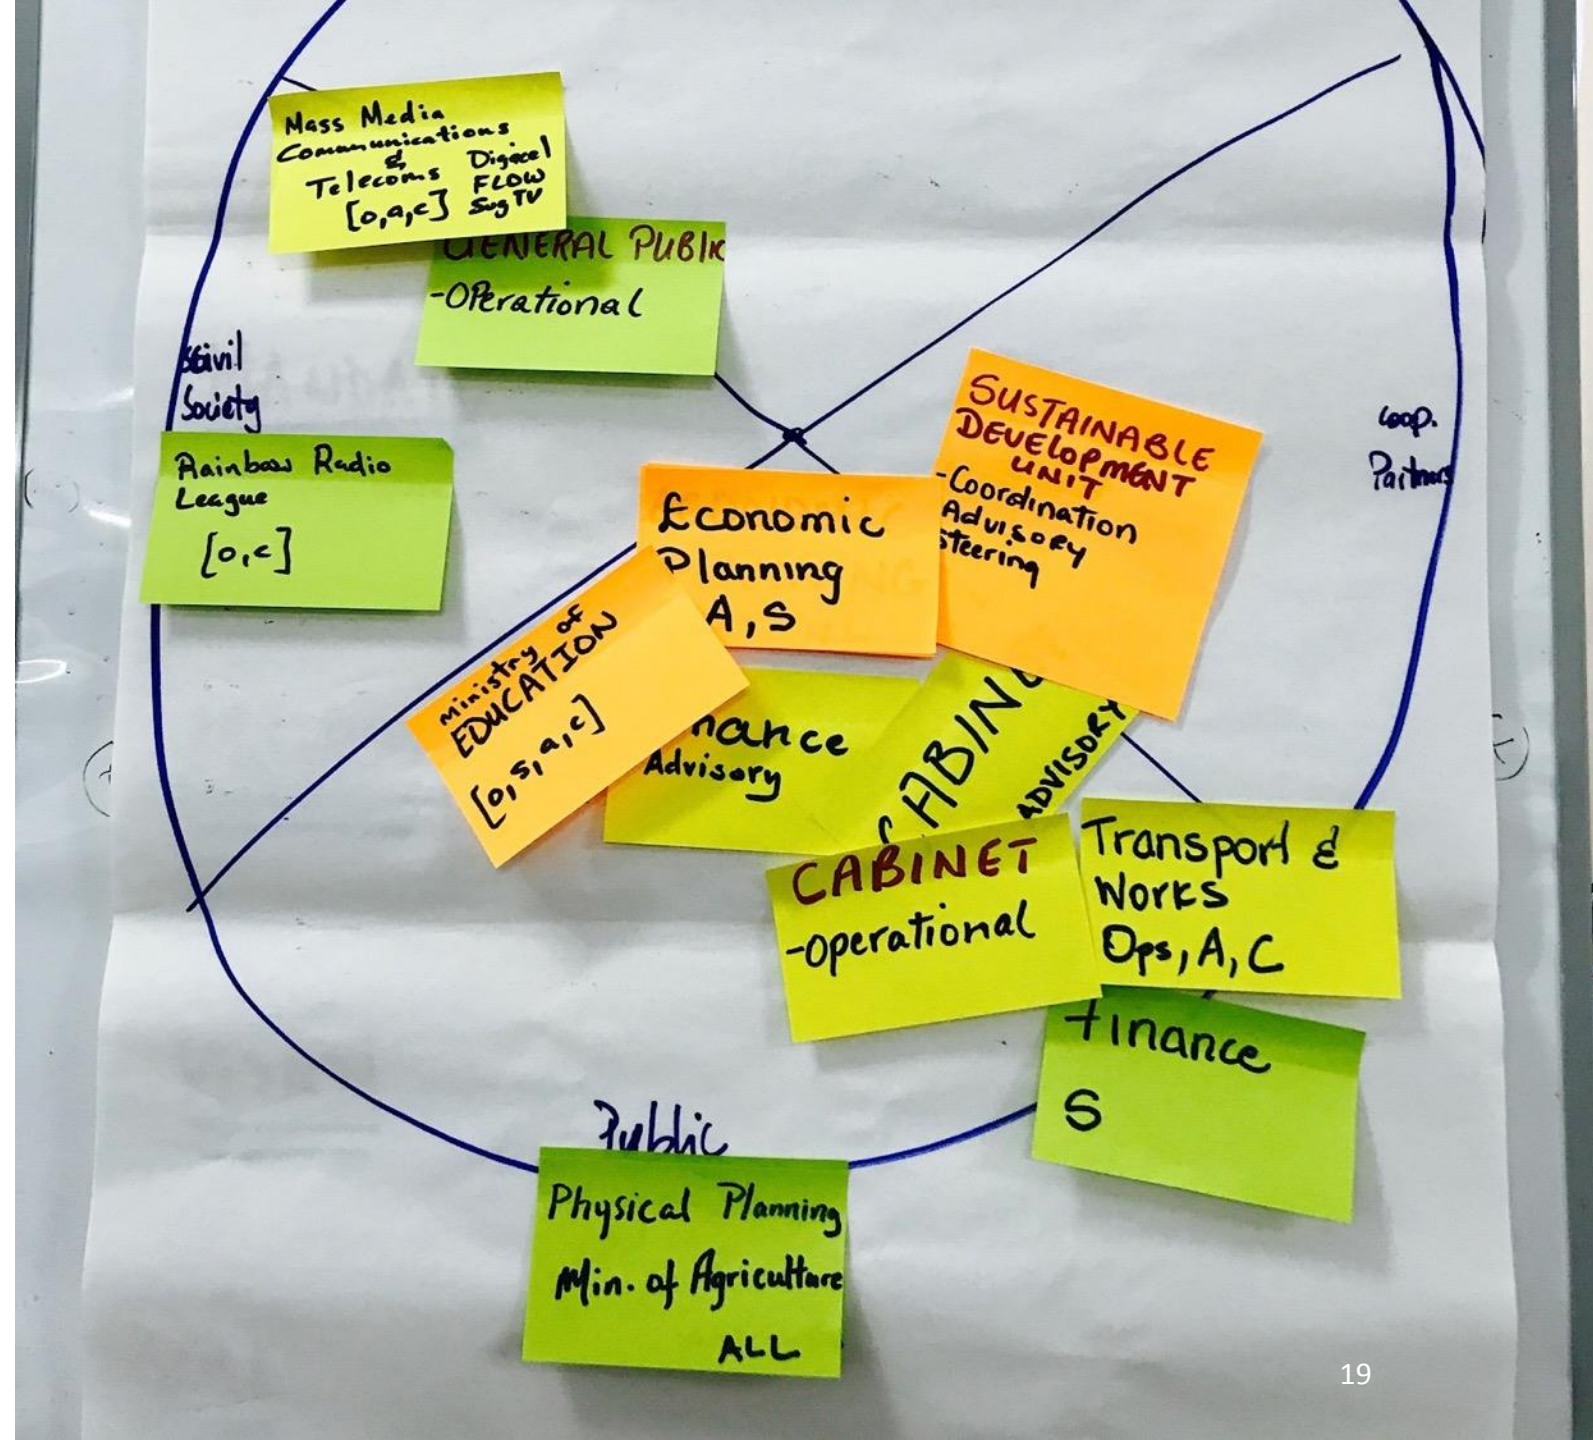 Mass Media
Communications
&
Telecoms
[o,a,c]
Digicel
FLOW
SvgTV
GENERAL PUBLIC
-Operational
Civil
Society
Rainbow Radio
League
[o,c]
SUSTAINABLE
DEVELOPMENT
UNIT
-Coordination
Advisory
Steering
Coop.
Partners
Economic
Planning
A, S
Ministry of
EDUCATION
[o, s, a, c]
nance
Advisory
CABINE
ADVISORY
CABINET
-operational
Transport &
Works
Ops, A, C
Finance
S
Public
Physical Planning
Min. of Agriculture
ALL
19